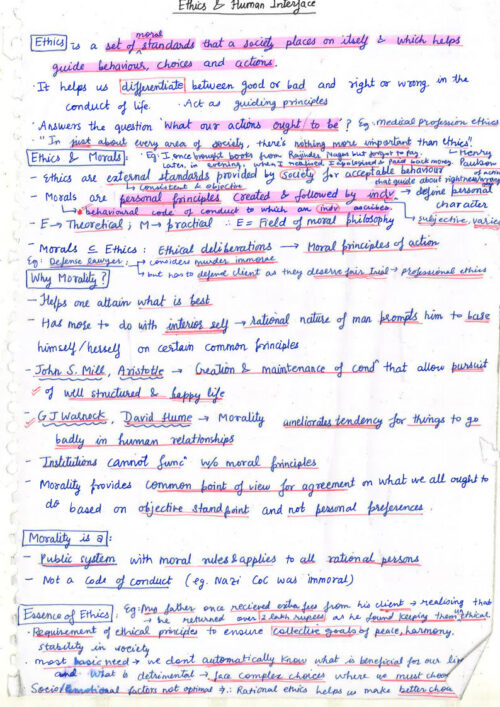 Ethics & Human Interface
Ethics is a set of moral standards that a society places on itself & which helps
guide behaviour, choices and actions.
· It helps us differentiate between good or bad and right or wrong in the
conduct of life. · Act as guiding principles
· Answers the question 'what our actions ought to be'? Eg. medical profession ethics
"In just about every area of society, there's nothing more important than ethics"
- Henry Paulson
Ethics & Morals - Eg: I once brought books from Rajinder Nagar but forgot to pay.
Later, in evening, when I realised I apologised & paid back money.
- Ethics are external standards provided by society for acceptable behaviour
of action
that guide about rightness/wrong
→ consistent & objective
- Morals are personal principles created & followed by indv → define personal
character
* behavioural code of conduct to which an indv ascribes
→ subjective, varies
- E → Theoretical ; M → practical ∴ E = Field of moral philosophy
- Morals ⊆ Ethics : Ethical deliberations → Moral principles of action
Eg: Defense lawyer: → considers murder immoral
→ but has to defend client as they deserve fair trial → professional ethics
Why Morality?
- Helps one attain what is best
- Has more to do with interior self → rational nature of man prompts him to base
himself/herself on certain common principles
- John S. Mill, Aristotle → Creation & maintenance of condn that allow pursuit
of well structured & happy life
- GJ Warnock, David Hume → Morality ameliorates tendency for things to go
badly in human relationships
- Institutions cannot funcn w/o moral principles
- Morality provides common point of view for agreement on what we all ought to
do based on objective standpoint and not personal preferences.
Morality is a :
- Public system with moral rules & applies to all rational persons
- Not a code of conduct (eg. Nazi CoC was immoral)
Essence of Ethics, Eg: My father once recieved extra fees from his client → realising that
→ he returned over 2 lakh rupees as he found keeping them unethical.
· Requirement of ethical principles to ensure collective goals of peace, harmony,
stability in society
· most basic need → we don't automatically know what is beneficial for our
and what is detrimental → face complex choices where we must
Socio/emotional factors not optimal → ∴ Rational ethics helps us make better